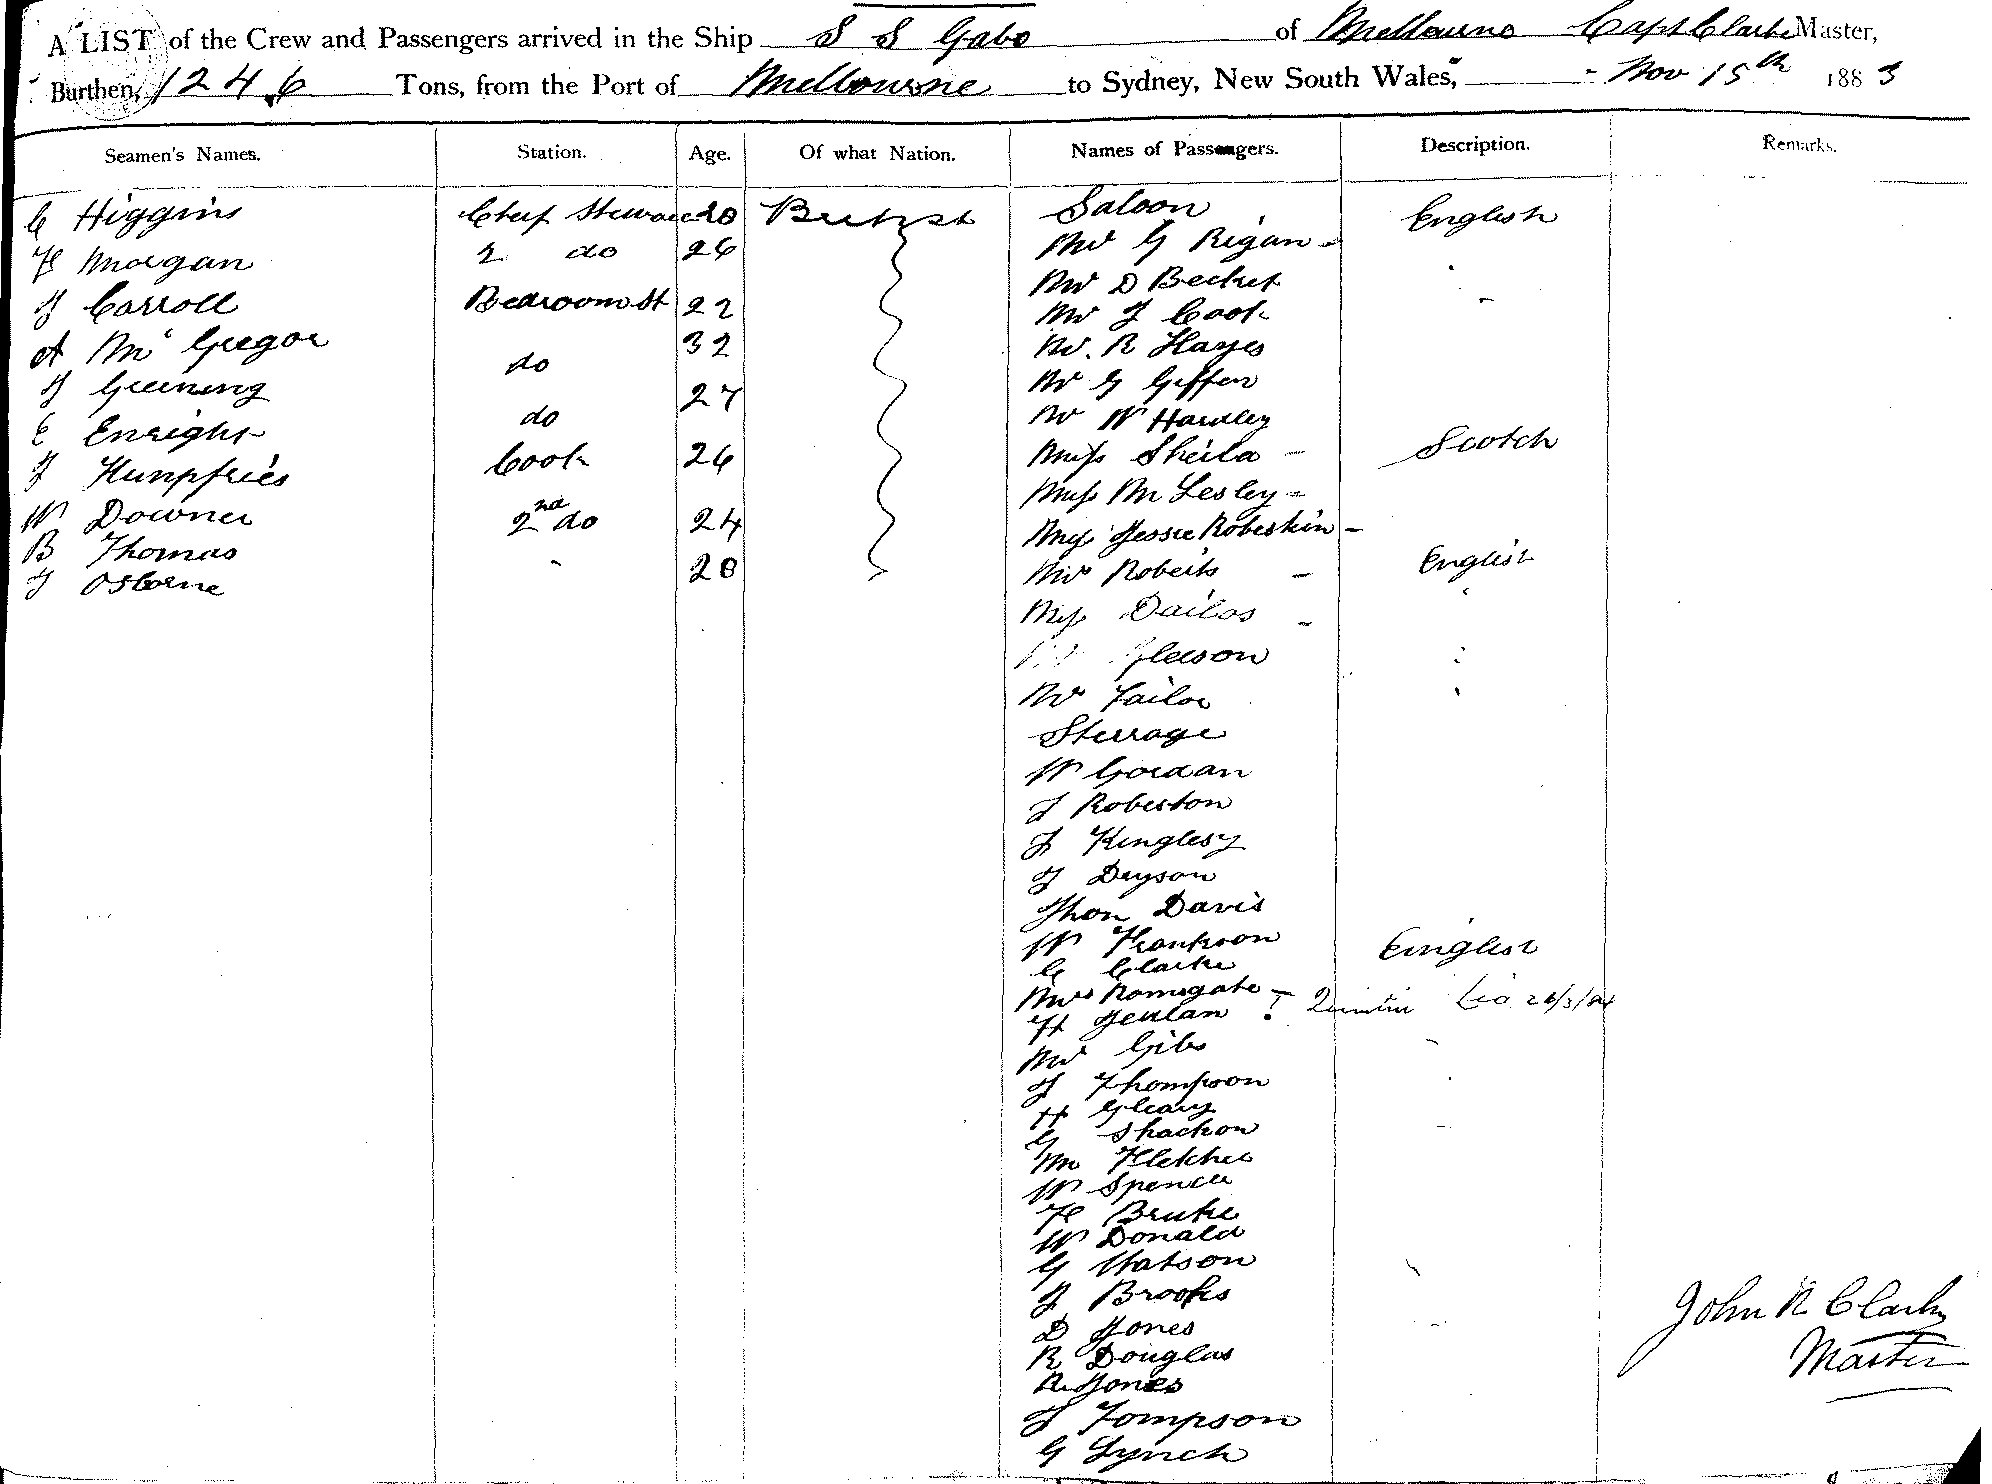 A LIST of the Crew and Passengers arrived in the Ship S S Gabo of Melbourne Capt Clarke Master,
Burthen, 1246 Tons, from the Port of Melbourne to Sydney, New South Wales, Nov 15th 1883
Seamen's Names. Station. Age. Of what Nation. Names of Passengers. Description. Remarks.
C Higgins Cheif Steward British Saloon English
F Morgan 2 do 26 Mr G Regan
J Carroll Bedroom St 22 Mr D Becket
A Mc Gregor do 32 Mr J Cook
J Greening do 27 Mr R Hayes
E Enright Cook 26 Mr G Geffen
J Humpfries 2nd do 24 Mr W Hardley
W Downer 28 Miss Sheila Scotch
B Thomas Miss M Lesley
J Osborne Miss Jessie Robertkin
Mr Roberts English
Miss Dailos
Gleeson
Mr Tailor
Sterrage
W Gordan
J Roberton
J Kinglesy
J Dryson
Jhon Davis
W Frankson English
C Clarke
Mrs Ramsgate
H
Mr Gibs
J Thompson
H Gleary
G Shackon
M Fletcher
W Spencer
F Bruke
W Donald
G Watson
J Brooks
D Jones
R Douglas
R Jones
J Tompson
G Lynch
John R Clark
Master